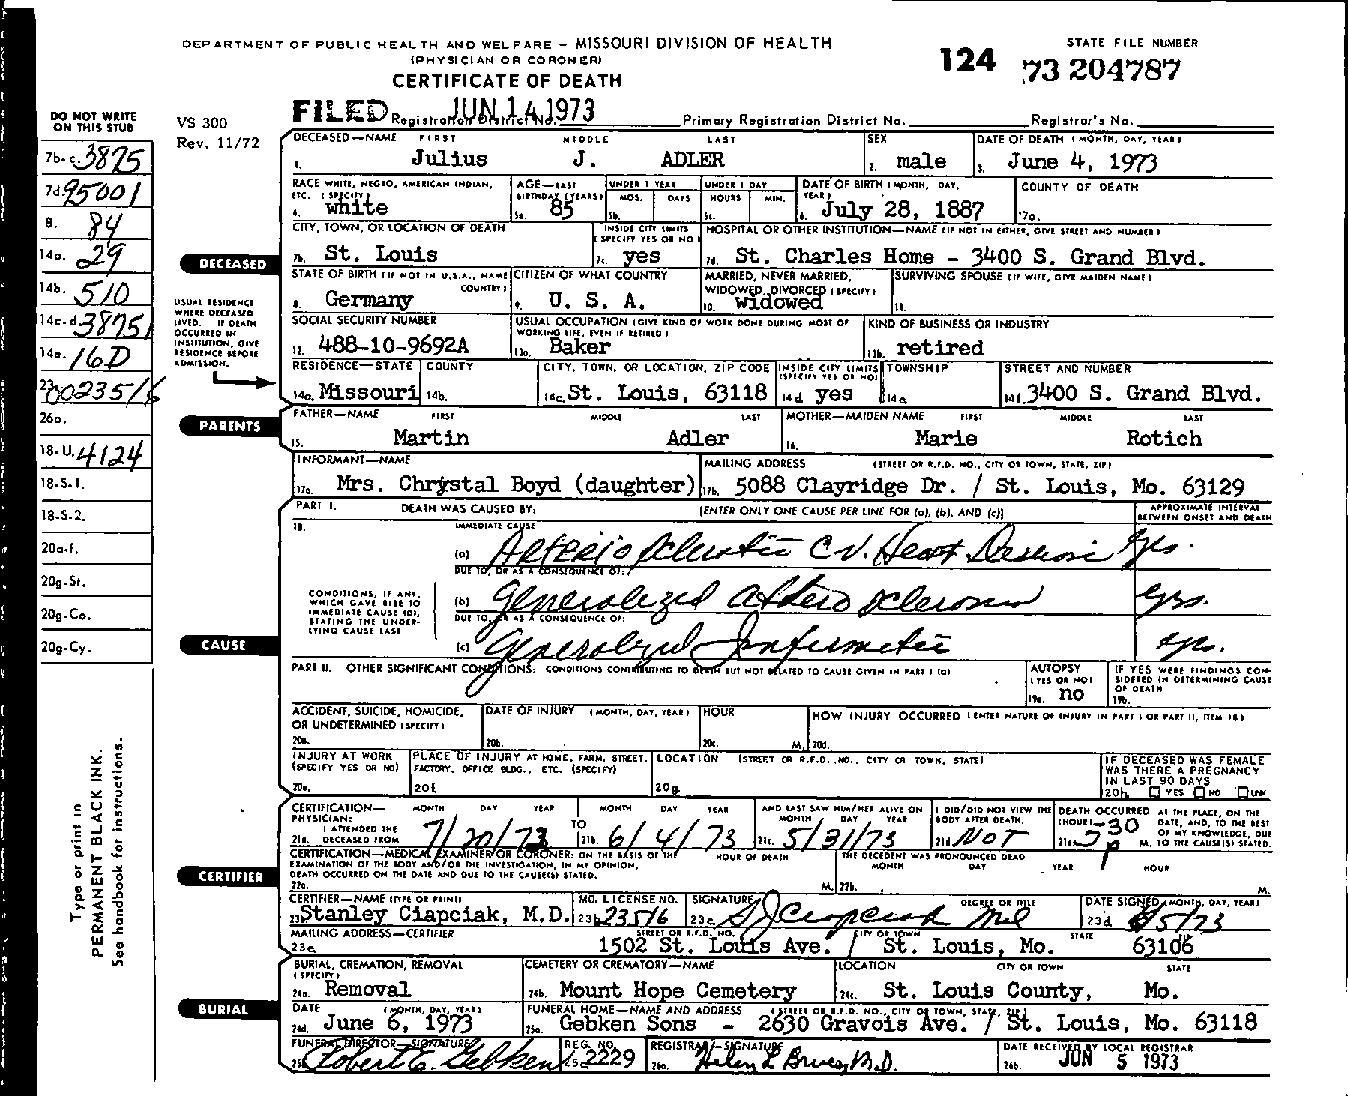 DEPARTMENT OF PUBLIC HEALTH AND WELFARE — MISSOURI DIVISION OF HEALTH
(PHYSICIAN OR CORONER)
CERTIFICATE OF DEATH
124
STATE FILE NUMBER
73 204787
DO NOT WRITE ON THIS STUB
VS 300
Rev. 11/72
FILED JUN 14 1973
Registration District No. Primary Registration District No. Registrar's No.
7b-c. 3875
7d. 95001
8. 84
14a. 29
14b. 510
14c-d 3875
14e. 16D
23. 0023516
26a.
18-U. 4124
18-S-1.
18-S-2.
20a-f.
20g-St.
20g-Co.
20g-Cy.
Type or print in
PERMANENT BLACK INK.
See handbook for instructions.
DECEASED
USUAL RESIDENCE WHERE DECEASED LIVED. IF DEATH OCCURRED IN INSTITUTION, GIVE RESIDENCE BEFORE ADMISSION.
DECEASED—NAME FIRST MIDDLE LAST
1. Julius J. ADLER
SEX
2. male
DATE OF DEATH (MONTH, DAY, YEAR)
3. June 4, 1973
RACE WHITE, NEGRO, AMERICAN INDIAN, ETC. (SPECIFY)
4. white
AGE—LAST BIRTHDAY (YEARS)
5a. 85
UNDER 1 YEAR
MOS. DAYS
5b.
UNDER 1 DAY
HOURS MIN.
5c.
DATE OF BIRTH (MONTH, DAY, YEAR)
6. July 28, 1887
COUNTY OF DEATH
7a.
CITY, TOWN, OR LOCATION OF DEATH
7b. St. Louis
INSIDE CITY LIMITS (SPECIFY YES OR NO)
7c. yes
HOSPITAL OR OTHER INSTITUTION—NAME (IF NOT IN EITHER, GIVE STREET AND NUMBER)
7d. St. Charles Home - 3400 S. Grand Blvd.
STATE OF BIRTH (IF NOT IN U.S.A., NAME COUNTRY)
8. Germany
CITIZEN OF WHAT COUNTRY
9. U. S. A.
MARRIED, NEVER MARRIED, WIDOWED, DIVORCED (SPECIFY)
10. widowed
SURVIVING SPOUSE (IF WIFE, GIVE MAIDEN NAME)
11.
SOCIAL SECURITY NUMBER
12. 488-10-9692A
USUAL OCCUPATION (GIVE KIND OF WORK DONE DURING MOST OF WORKING LIFE, EVEN IF RETIRED)
13a. Baker
KIND OF BUSINESS OR INDUSTRY
13b. retired
RESIDENCE—STATE
14a. Missouri
COUNTY
14b.
CITY, TOWN, OR LOCATION, ZIP CODE
14c. St. Louis, 63118
INSIDE CITY LIMITS (SPECIFY YES OR NO)
14d yes
TOWNSHIP
14e
STREET AND NUMBER
14f. 3400 S. Grand Blvd.
PARENTS
FATHER—NAME FIRST MIDDLE LAST
15. Martin Adler
MOTHER—MAIDEN NAME FIRST MIDDLE LAST
16. Marie Rotich
INFORMANT—NAME
17a. Mrs. Chrystal Boyd (daughter)
MAILING ADDRESS (STREET OR R.F.D. NO., CITY OR TOWN, STATE, ZIP)
17b. 5088 Clayridge Dr. / St. Louis, Mo. 63129
CAUSE
PART I. DEATH WAS CAUSED BY: [ENTER ONLY ONE CAUSE PER LINE FOR (a), (b), AND (c)]
APPROXIMATE INTERVAL BETWEEN ONSET AND DEATH
18. IMMEDIATE CAUSE
(a) Arterio sclerotic C.V. Heart Disease yrs.
DUE TO, OR AS A CONSEQUENCE OF:
CONDITIONS, IF ANY, WHICH GAVE RISE TO IMMEDIATE CAUSE (a), STATING THE UNDERLYING CAUSE LAST
(b) Generalized arterio sclerosis yrs.
DUE TO, OR AS A CONSEQUENCE OF:
(c) Generalized yr.
PART II. OTHER SIGNIFICANT CONDITIONS: CONDITIONS CONTRIBUTING TO DEATH BUT NOT RELATED TO CAUSE GIVEN IN PART I (a)
AUTOPSY (YES OR NO)
19a. no
IF YES WERE FINDINGS CONSIDERED IN DETERMINING CAUSE OF DEATH
19b.
ACCIDENT, SUICIDE, HOMICIDE, OR UNDETERMINED (SPECIFY)
20a.
DATE OF INJURY (MONTH, DAY, YEAR)
20b.
HOUR
20c. M.
HOW INJURY OCCURRED (ENTER NATURE OF INJURY IN PART I OR PART II, ITEM 18)
20d.
INJURY AT WORK (SPECIFY YES OR NO)
20e.
PLACE OF INJURY AT HOME, FARM, STREET, FACTORY, OFFICE BLDG., ETC. (SPECIFY)
20f.
LOCATION (STREET OR R.F.D. NO., CITY OR TOWN, STATE)
20g.
IF DECEASED WAS FEMALE WAS THERE A PREGNANCY IN LAST 90 DAYS
20h. YES NO UNK
CERTIFIER
CERTIFICATION—PHYSICIAN: MONTH DAY YEAR
21a. I ATTENDED THE DECEASED FROM 7/20/73 TO
MONTH DAY YEAR
21b. 6/4/73
AND LAST SAW HIM/HER ALIVE ON MONTH DAY YEAR
21c. 5/31/73
I DID/DID NOT VIEW THE BODY AFTER DEATH.
21d. NOT
DEATH OCCURRED AT THE PLACE, ON THE DATE, AND, TO THE BEST OF MY KNOWLEDGE, DUE TO THE CAUSE(S) STATED.
(HOUR)
21e. 30 P M.
CERTIFICATION—MEDICAL EXAMINER OR CORONER: ON THE BASIS OF THE EXAMINATION OF THE BODY AND/OR THE INVESTIGATION, IN MY OPINION, DEATH OCCURRED ON THE DATE AND DUE TO THE CAUSE(S) STATED.
22a.
HOUR OF DEATH
M.
THE DECEDENT WAS PRONOUNCED DEAD
MONTH DAY YEAR HOUR
22b. M.
CERTIFIER—NAME (TYPE OR PRINT)
23a. Stanley Ciapciak, M.D.
MO. LICENSE NO.
23b. 23516
SIGNATURE DEGREE OR TITLE
23c. S J Ciapciak MD
DATE SIGNED (MONTH, DAY, YEAR)
23d. 6/5/73
MAILING ADDRESS—CERTIFIER STREET OR R.F.D. NO. CITY OR TOWN STATE
23e. 1502 St. Louis Ave. / St. Louis, Mo. 63106
BURIAL
BURIAL, CREMATION, REMOVAL (SPECIFY)
24a. Removal
CEMETERY OR CREMATORY—NAME
24b. Mount Hope Cemetery
LOCATION CITY OR TOWN STATE
24c. St. Louis County, Mo.
DATE (MONTH, DAY, YEAR)
24d. June 6, 1973
FUNERAL HOME—NAME AND ADDRESS (STREET OR R.F.D. NO., CITY OR TOWN, STATE, ZIP)
25a. Gebken Sons - 2630 Gravois Ave. / St. Louis, Mo. 63118
FUNERAL DIRECTOR—SIGNATURE
25b. Robert E. Gebken
REG. NO.
25c. 2229
REGISTRAR—SIGNATURE
26a. Helen L Bruce, M.D.
DATE RECEIVED BY LOCAL REGISTRAR
26b. JUN 5 1973